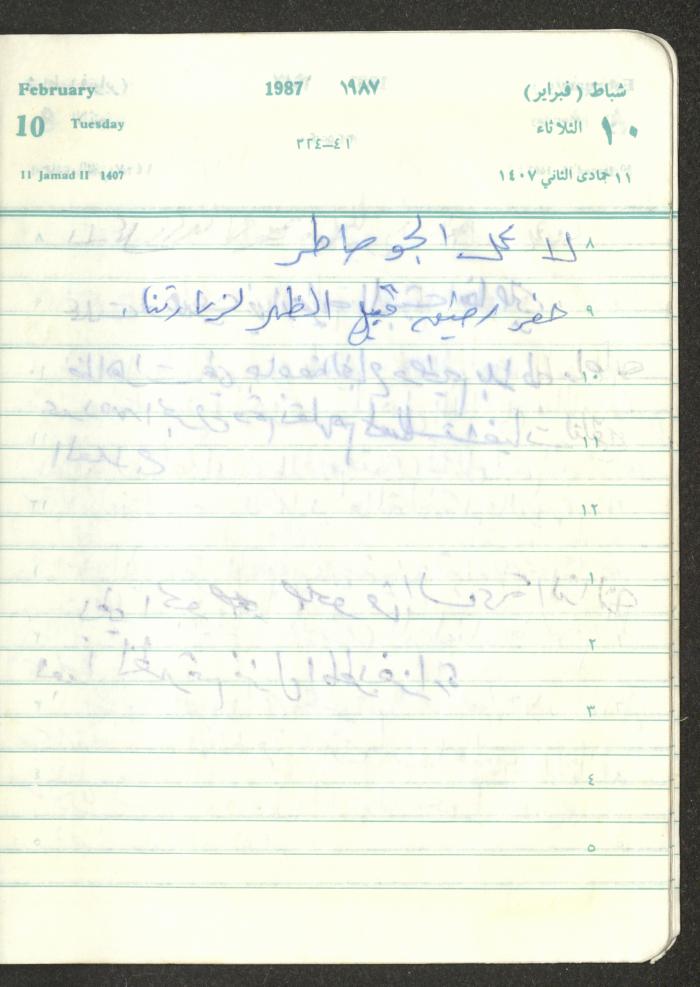 February 1987 ١٩٨٧ شباط (فبراير)
10 Tuesday ٤١–٣٢٤ الثلاثاء ١٠
11 Jamad II 1407 ١١ جمادى الثاني ١٤٠٧
٨ لا عمل الجو ماطر
٩ حضر قبيل الظهر لزيارتنا.
١٠
١١
١٢
١
٢
٣
٤
٥